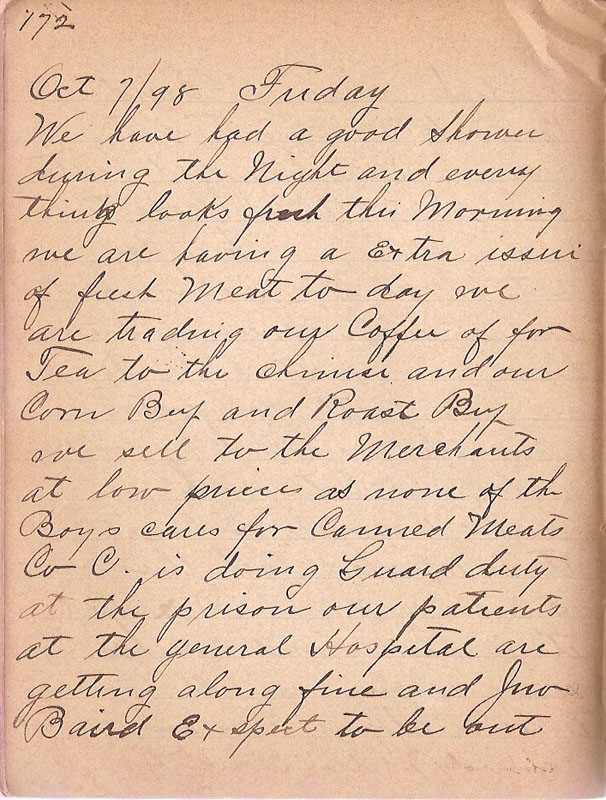 172
Oct 7/98 Friday
We have had a good Shower
during the Night and every
thing looks fresh this Morning
we are having a Extra issue
of fresh Meat to day we
are trading our Coffee of for
Tea to the chinise and our
Corn Beef and Roast Beef
we sell to the Merchants
at low prieces as none of the
Boys cares for Canned Meats
Co C. is doing Guard duty
at the prison our patients
at the general Hospital are
getting along fine and Jno
Baird Exspect to be out